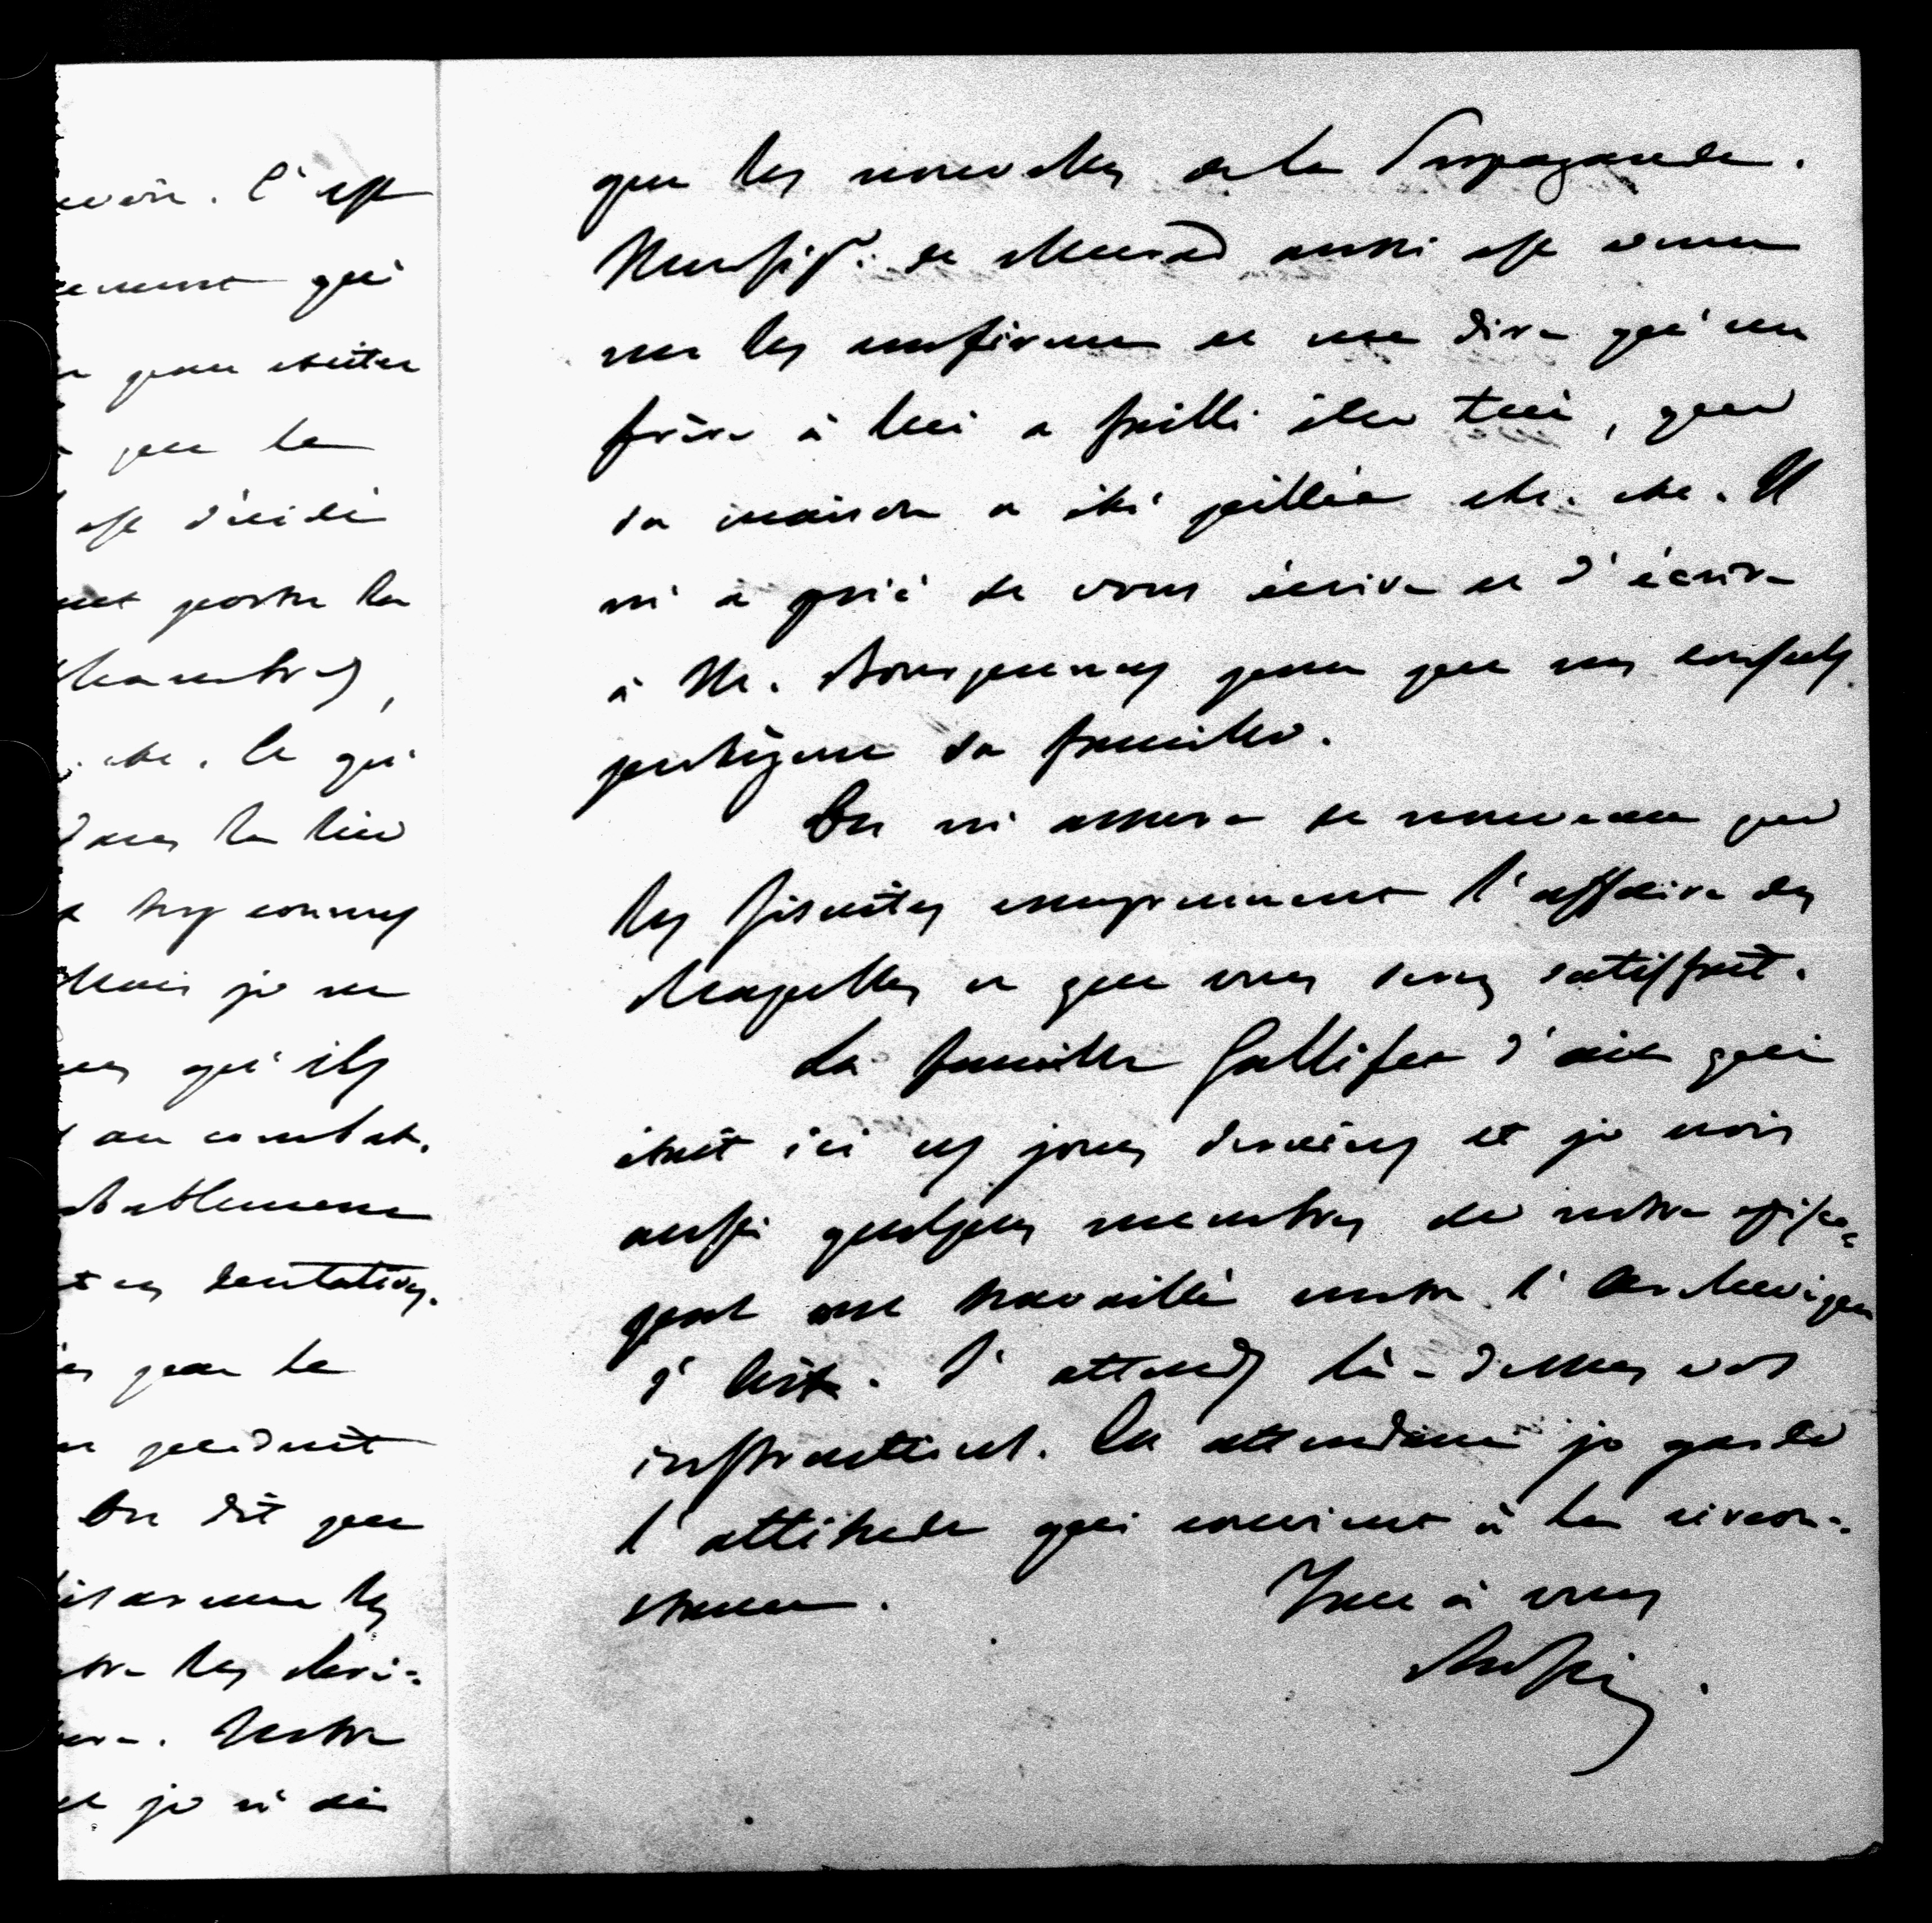 evoir. C'est
ement qui
pour eviter
que la
est décidé
porter la
Chambres,
etc. Ce qui
dans le lieu
trop connus
Mais je ne
pas qu'ils
au combat.
bablement
ces tentatives.
pour la
On dit que
les
les
Notre
et je n'ai
que les nouvelles de la Propagande.
Monsigr. de Murad aussi est venu
me les confirmer et me dire qu'un
frère à lui a failli être tué, que
sa maison a été pillée etc. etc. Il
m'a prié de vous écrire et d'écrire
à Mr. Bourqueney pour que nos consuls
protègent sa famille.
On m'assure de nouveau que
les Jésuites comprennent l'affaire des
chapelles et que vous serez satisfait.
La famille Galliffet d'Aix qui
était ici ces jours derniers et je crois
aussi quelques membres de notre épisco=
pat ont travaillé contre l'Archevêque
d'Aix. J'attends là-dessus vos
instructions. En attendant je garde
l'attitude qui convient à la circon=
stance. Tout à vous
Rossi.